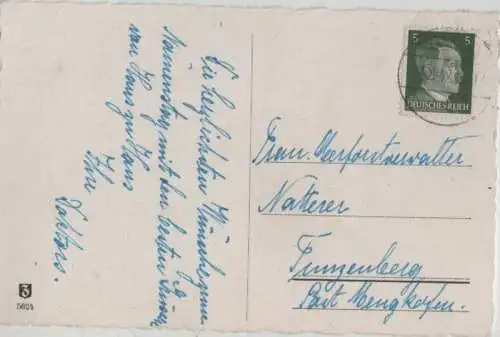 Die herzlichsten Wünsche zum
Namenstag mit den besten Grüßen
von Haus zu Haus
Ihre
5 5
DEUTSCHES REICH
Frau Oberforstverwalter
Natterer
Tunzenberg
Post Mengkofen.
3
5604